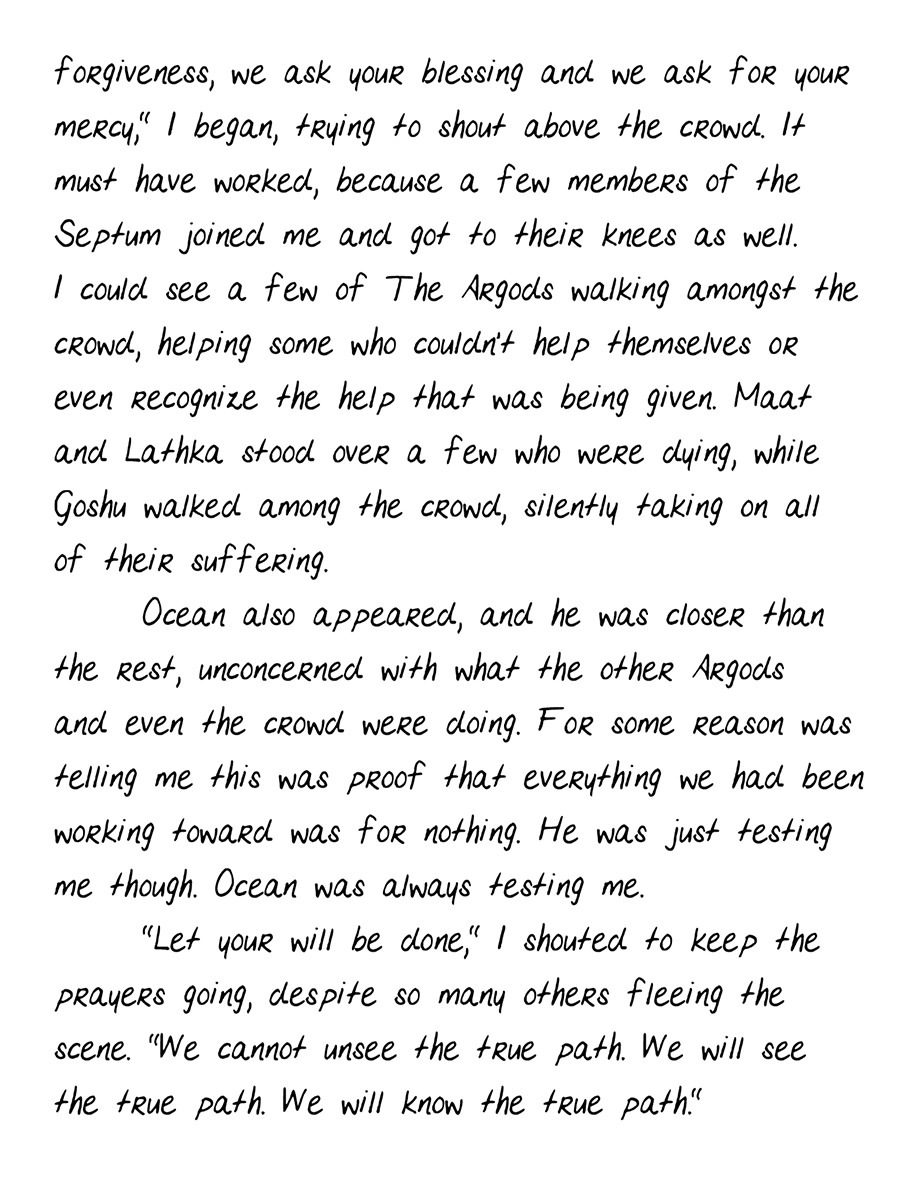 forgiveness, we ask your blessing and we ask for your
mercy,“ I began, trying to shout above the crowd. It
must have worked, because a few members of the
Septum joined me and got to their knees as well.
I could see a few of The Argods walking amongst the
crowd, helping some who couldn't help themselves or
even recognize the help that was being given. Maat
and Lathka stood over a few who were dying, while
Goshu walked among the crowd, silently taking on all
of their suffering.
Ocean also appeared, and he was closer than
the rest, unconcerned with what the other Argods
and even the crowd were doing. For some reason was
telling me this was proof that everything we had been
working toward was for nothing. He was just testing
me though. Ocean was always testing me.
“Let your will be done,“ I shouted to keep the
prayers going, despite so many others fleeing the
scene. “We cannot unsee the true path. We will see
the true path. We will know the true path.“